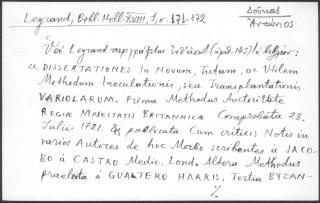 Legrand, Bibl. Hell. XVIII, 1, σ. 171-172
Δούκας
Ἀντώνιος
Legrand περιγράφεται
(ἀριθ. 145)
« DISSERTATIONES in Novam, Tutam, ac Utilem
Methodum Inoculationis, seu Transplantationis
VARIOLARUM. Prima Methodus Auctoritate
REGIAE MAIESTATIS BRITANNICAE Comprobata 28.
Julii 1721. & publicata Cum criticis Notis in
varios Autores de hoc Morbo scribentes à JACO-
BO à CASTRO Medic. Lond. Altera Methodus
praelecta à GUALTERO HARRIS. Tertia BYZAN-
·/.